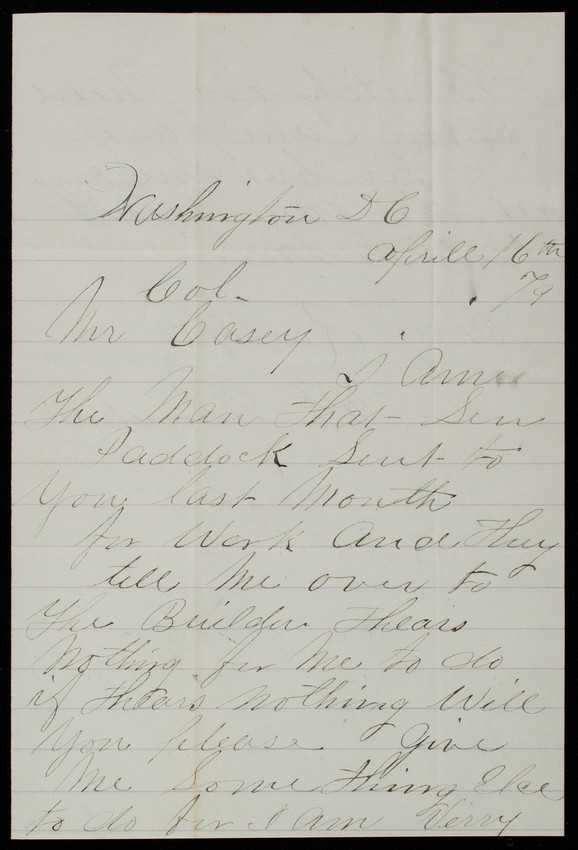 Washington D C
Aprill 16th
/79
Col.
Mr Casey
I Am
The Man that Sen
Paddock Sent to
You last Month
for Work And They
tell Me over to
The Builder thears
Nothing for Me to do
if thears nothing Will
You please Give
Me Some thing Else
to do for I Am Verry